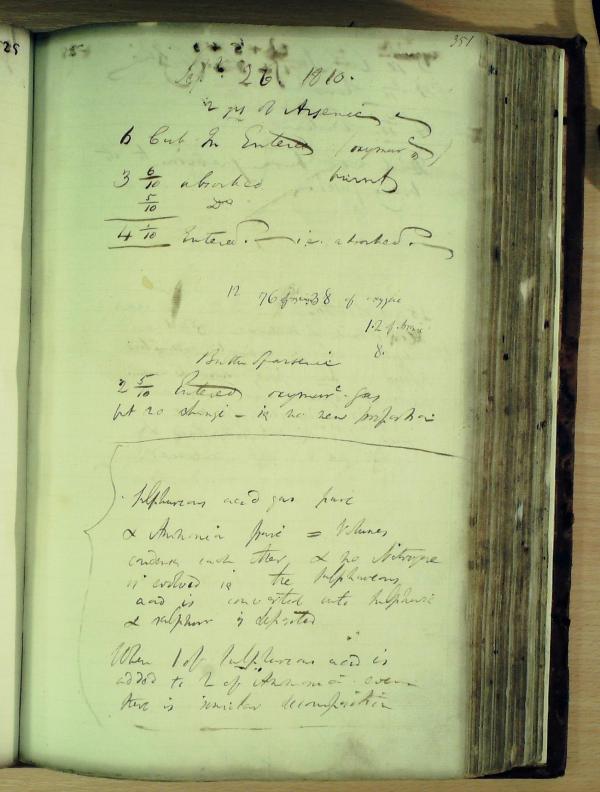 351
Sept. 26. 1810.
2 grs of Arsenic
6 Cub In Entered (oxymurc
3 6/10 absorbed burnt
5/10 Do
4 1/10 Entered. - i.e. absorbed.
12 76 38 of oxygene
1.2 of
8.
Butter of arsenic
2 5/10 Entered oxymurc. gas
but no change - is no new proportion
Sulphureous acid gas pure
& Ammonia pure = Volumes
condense each other & no Nitrogene
is evolved is the Sulphureous
acid is converted into Sulphuric
& sulphur is deposited
When 1 of Sulphureous acid is
added to 2 of Ammonia even
there is similar decomposition
25